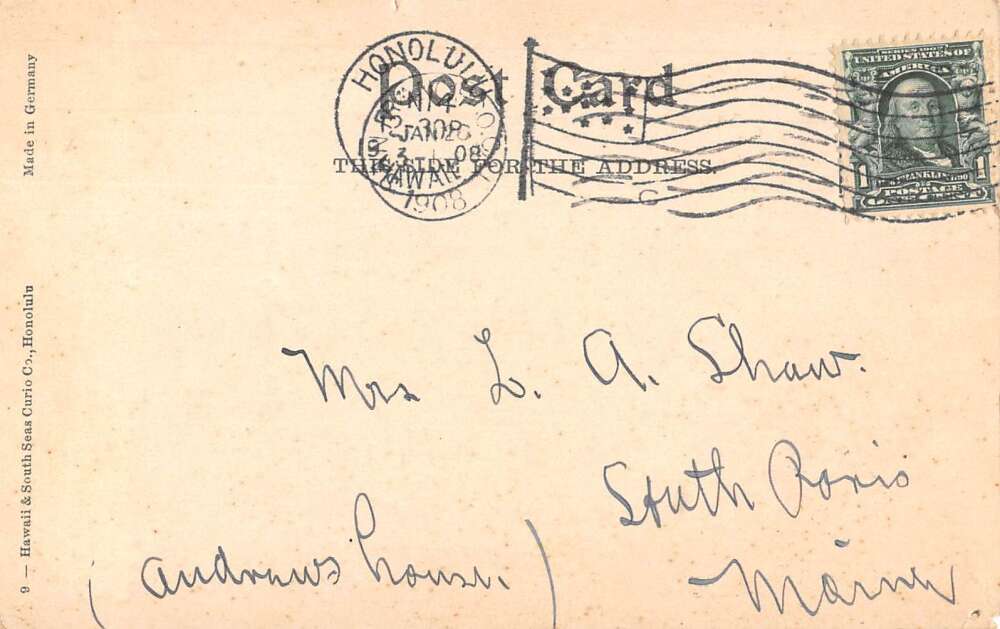 Made in Germany
9 — Hawaii & South Seas Curio Co., Honolulu
Post Card
THIS SIDE FOR THE ADDRESS.
HONOLULU
JAN
1908
SERIES 1902
UNITED STATES OF
AMERICA
FRANKLIN
1 1
POSTAGE
ONE CENT
Mrs L. A. Shaw.
South Paris
Maine
(Andrews house.)